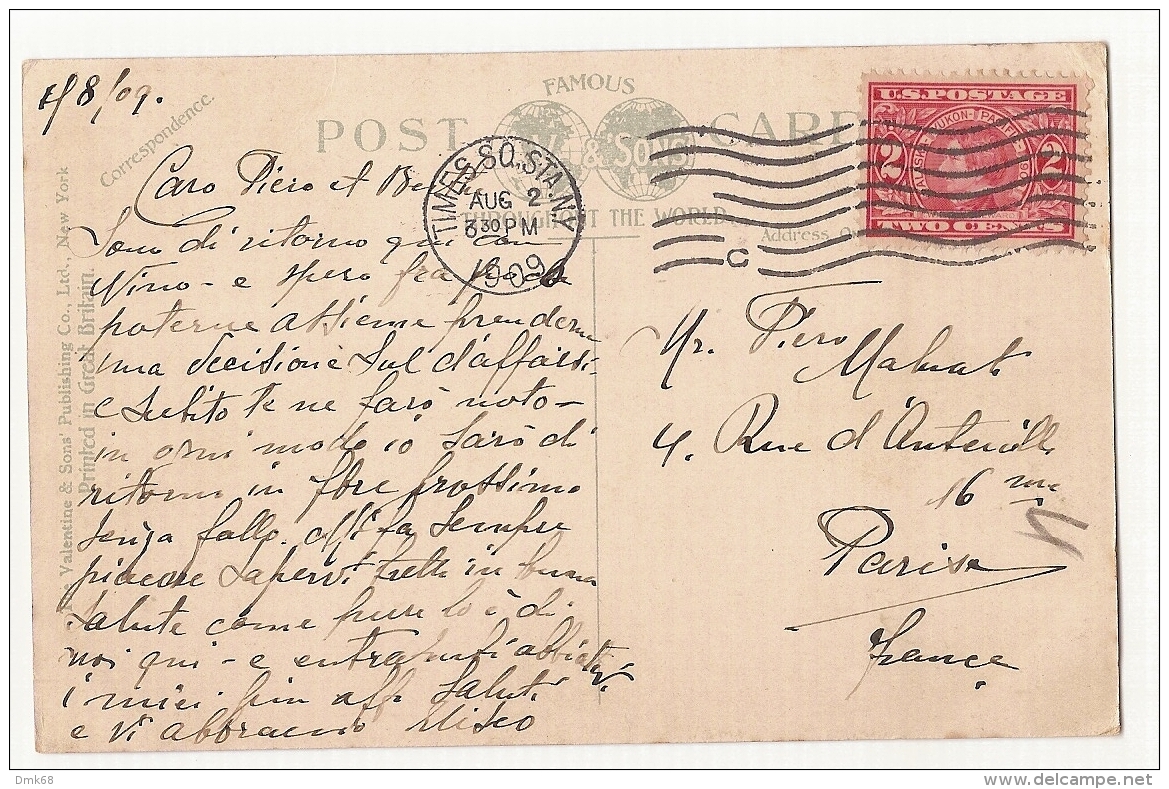 1/8/09.
Correspondence.
FAMOUS
POST CARD
& SONS
THROUGHOUT THE WORLD
Address On
U.S. POSTAGE
YUKON-PACIFIC
2 2
TWO CENTS
TIMES SQ. STA. N.Y.
AUG 2
3 30 PM
1909
C
The Valentine & Sons' Publishing Co., Ltd., New York
Printed in Great Britain.
Caro Piero et
Sono di ritorno qui con
Nino - e spero fra poco
poterne assieme prenderne
una decisione sul d'affari
e subito te ne farò noto -
in ogni modo io sarò di
ritorno in 9bre prossimo
senza fallo. Mi fa sempre
piacere sapervi tutti in buona
salute come pure lo è di
noi qui - e entrambi abbiatevi
i miei più aff. saluti
e vi abbraccio Eliseo
Mr. Piero
4. Rue d'Auteuil
16 me
Paris
France
Dmk68
www.delcampe.net